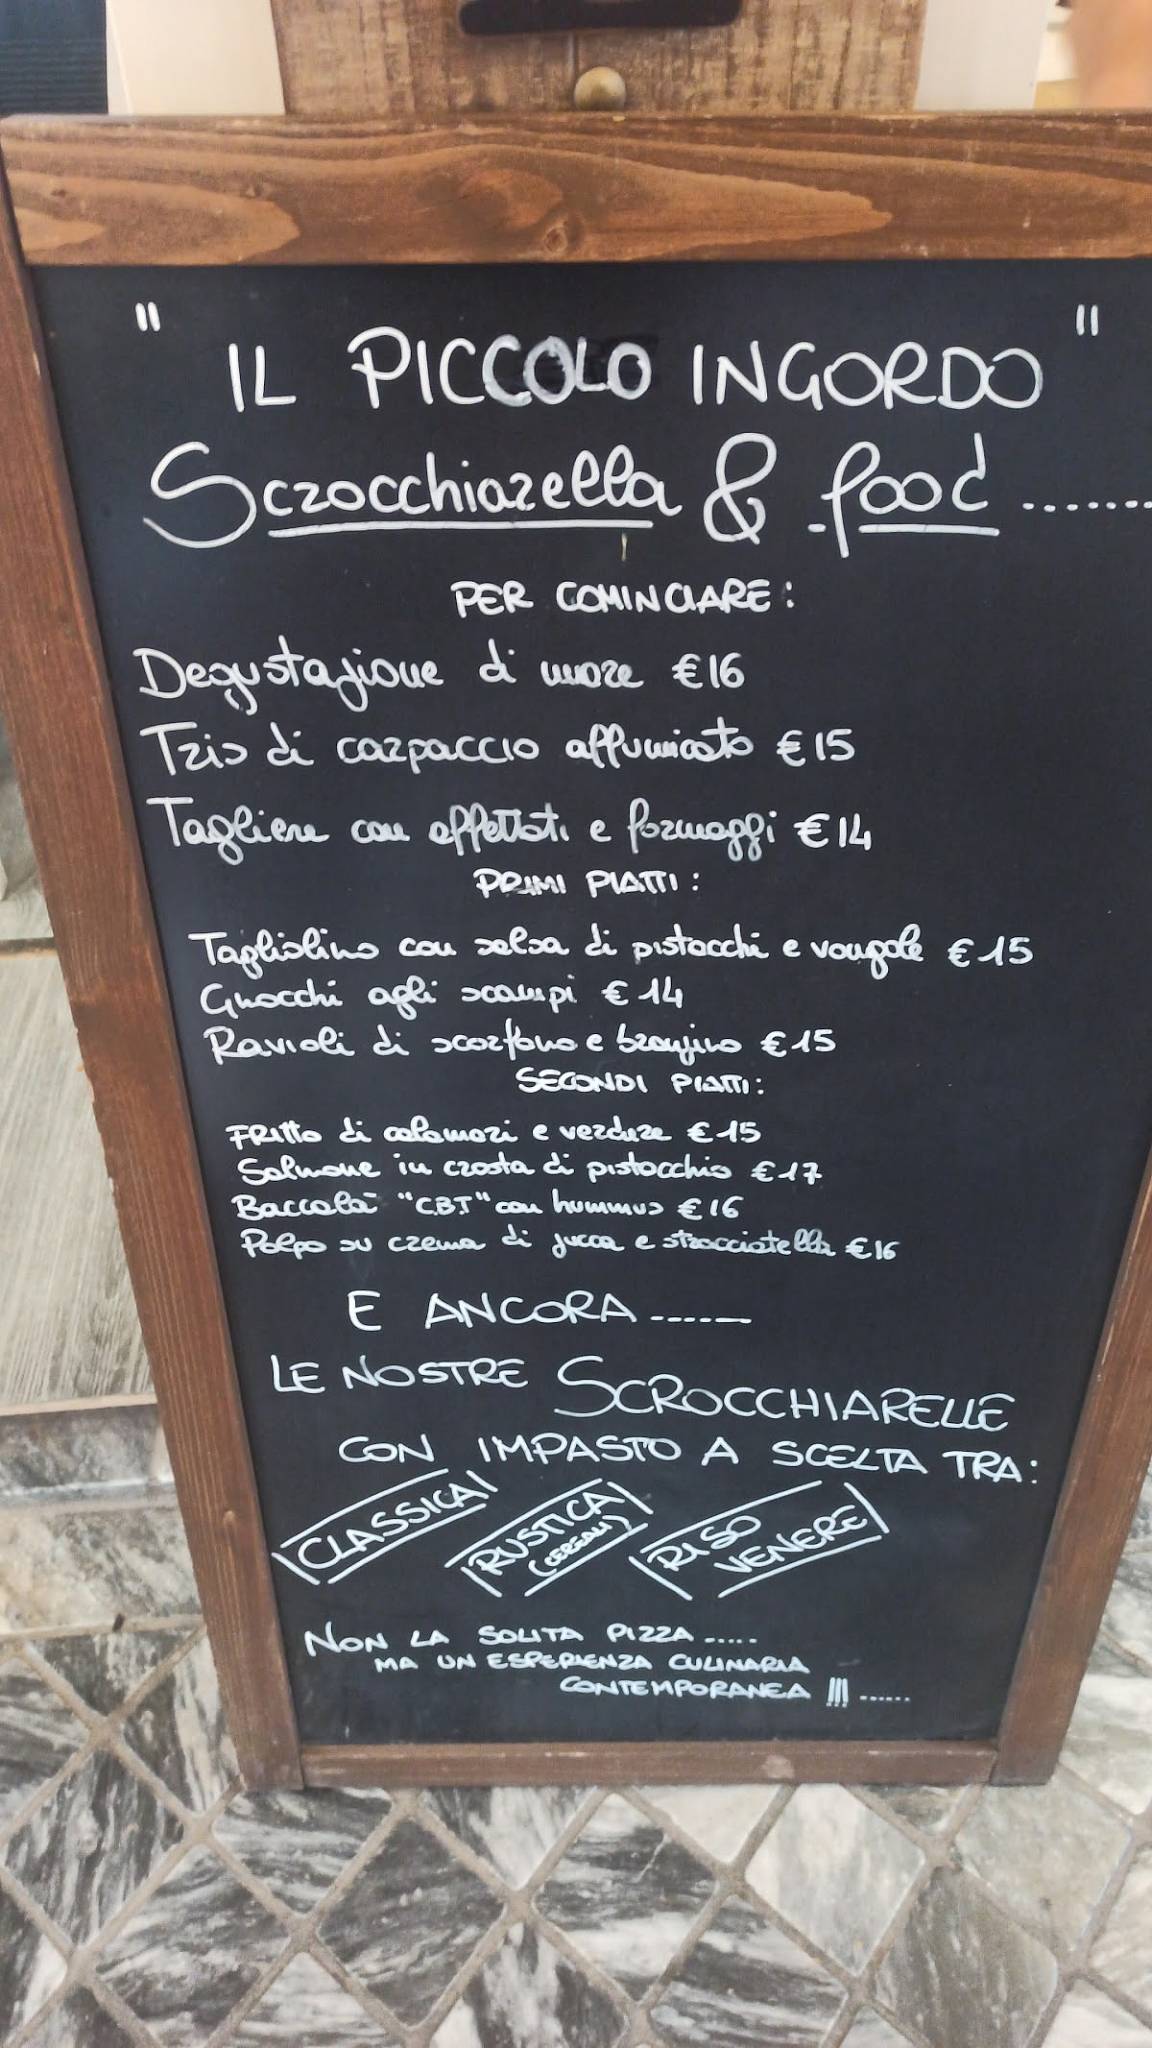 " IL PICCOLO INGORDO "
Scrocchiarella & food .......
PER COMINCIARE:
Degustazione di mare €16
Tris di carpaccio affumicato €15
Tagliere con affettati e formaggi €14
PRIMI PIATTI:
Tagliolino con salsa di pistacchi e vongole €15
Gnocchi agli scampi €14
Ravioli di scorfano e branzino €15
SECONDI PIATTI:
FRITTO di calamari e verdure €15
Salmone in crosta di pistacchio €17
Baccalà "C.B.T" con hummus €16
Polpo su crema di zucca e stracciatella €16
E ANCORA ......
LE NOSTRE SCROCCHIARELLE
CON IMPASTO A SCELTA TRA:
CLASSICA
RUSTICA
(CEREALI)
RISO
VENERE
NON LA SOLITA PIZZA .....
MA UN ESPERIENZA CULINARIA
CONTEMPORANEA !!! ......